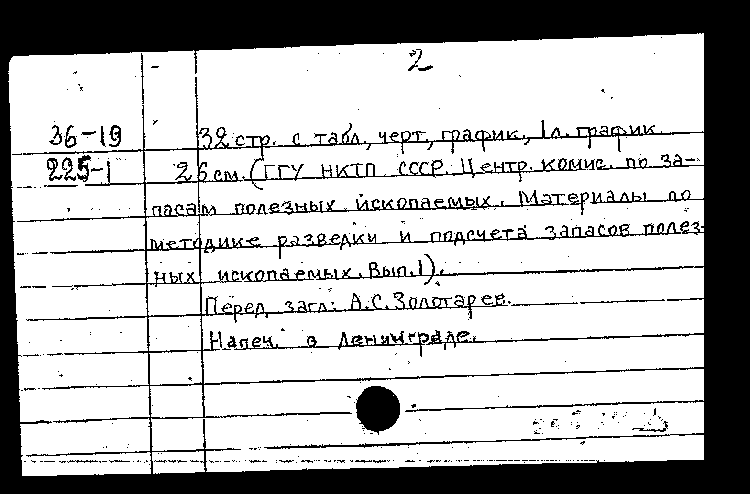 2
36-19 32 стр. с табл., черт., график., 1 л. график
225-1 26 см. (ГГУ НКТП СССР. Центр. комис. по за-
пасам полезных ископаемых. Материалы по
методике разведки и подсчета запасов полез-
ных ископаемых. Вып. 1).
Перед загл: А.С. Золотарев.
Напеч. в Ленинграде.